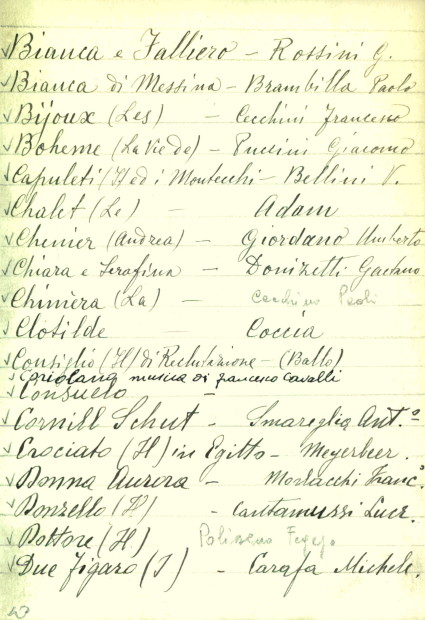 Bianca e Falliero - Rossini G.
Bianca di Messina - Brambilla Paolo
Bijoux (Les) - Cecchini Francesco
Boheme (La Vie de) - Puccini Giacomo
Capuleti (I) ed i Montecchi - Bellini V.
Chalet (Le) - Adam
Chenier (Andrea) - Giordano Umberto
Chiara e Serafina - Donizetti Gaetano
Chimèra (La)
Clotilde - Coccia
Consiglio (Il) di Reclutazione - (Ballo)
Coriolano musica di Francesco Cavalli
Consuelo -
Cornill Schut - Smareglia Ant.º
Crociato (Il) in Egitto - Meyerbeer.
Donna Aurora - Morlacchi Franc.º
Donzello (Il) - Cantamussi Luce.
Dottore (Il)
Due Figaro (I) - Carafa Michele.